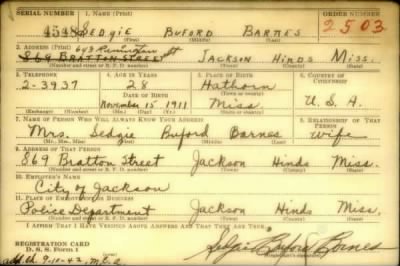 SERIAL NUMBER 1. NAME (Print) ORDER NUMBER
4548 SEDGIE BUFORD BARNES 2503
(First) (Middle) (Last)
2. ADDRESS (Print) 643 St
869 BRATTON STREET JACKSON HINDS MISS.
(Number and street or R. F. D. number) (Town) (County) (State)
3. TELEPHONE 4. AGE IN YEARS 5. PLACE OF BIRTH 6. COUNTRY OF CITIZENSHIP
2-3937 28 Hathorn
DATE OF BIRTH (Town or county)
November 15, 1911 Miss. U.S.A.
(Exchange) (Number) (Mo.) (Day) (Yr.) (State or country)
7. NAME OF PERSON WHO WILL ALWAYS KNOW YOUR ADDRESS 8. RELATIONSHIP OF THAT PERSON
Mrs. Sedgie Buford Barnes wife
(Mr., Mrs., Miss) (First) (Middle) (Last)
9. ADDRESS OF THAT PERSON
869 Bratton Street Jackson Hinds Miss.
(Number and street or R. F. D. number) (Town) (County) (State)
10. EMPLOYER'S NAME
City of Jackson
11. PLACE OF EMPLOYMENT OR BUSINESS
Police Department Jackson Hinds Miss.
(Number and street or R. F. D. number) (Town) (County) (State)
I AFFIRM THAT I HAVE VERIFIED ABOVE ANSWERS AND THAT THEY ARE TRUE.
REGISTRATION CARD
D. S. S. Form 1 Sedgie Buford Barnes
add. ch. 9-10-42